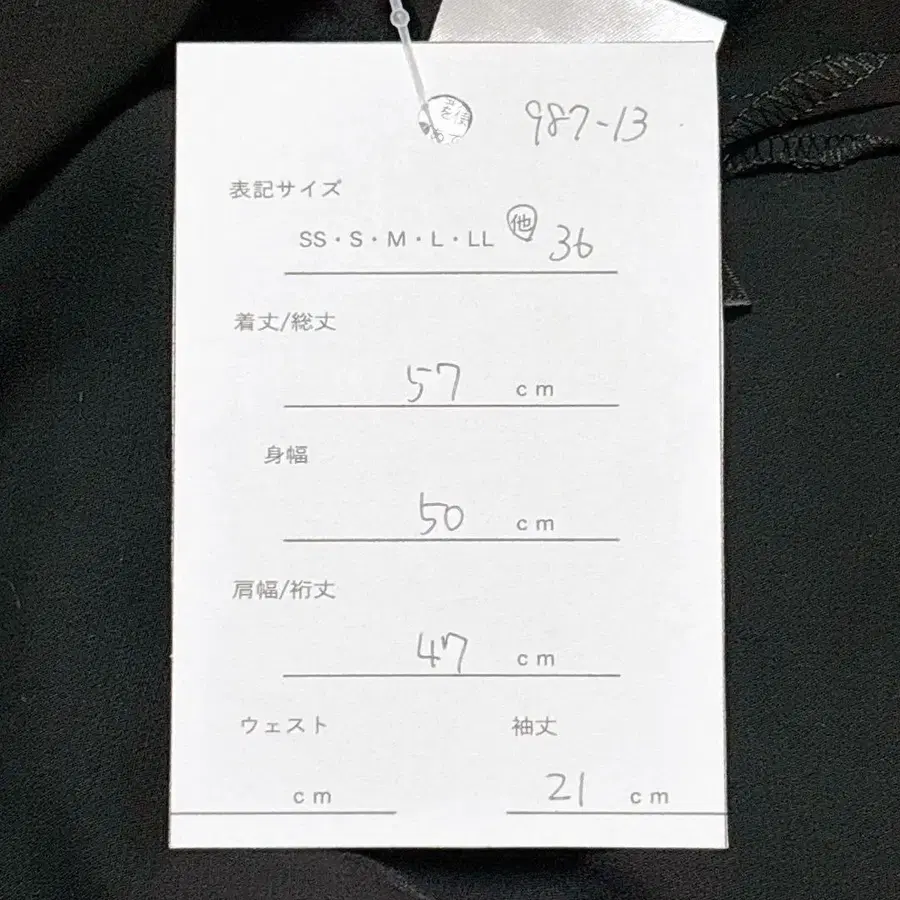 987-13
表記サイズ
SS・S・M・L・LL 他 36
着丈/総丈
57 cm
身幅
50 cm
肩幅/裄丈
47 cm
ウェスト 袖丈
cm 21 cm